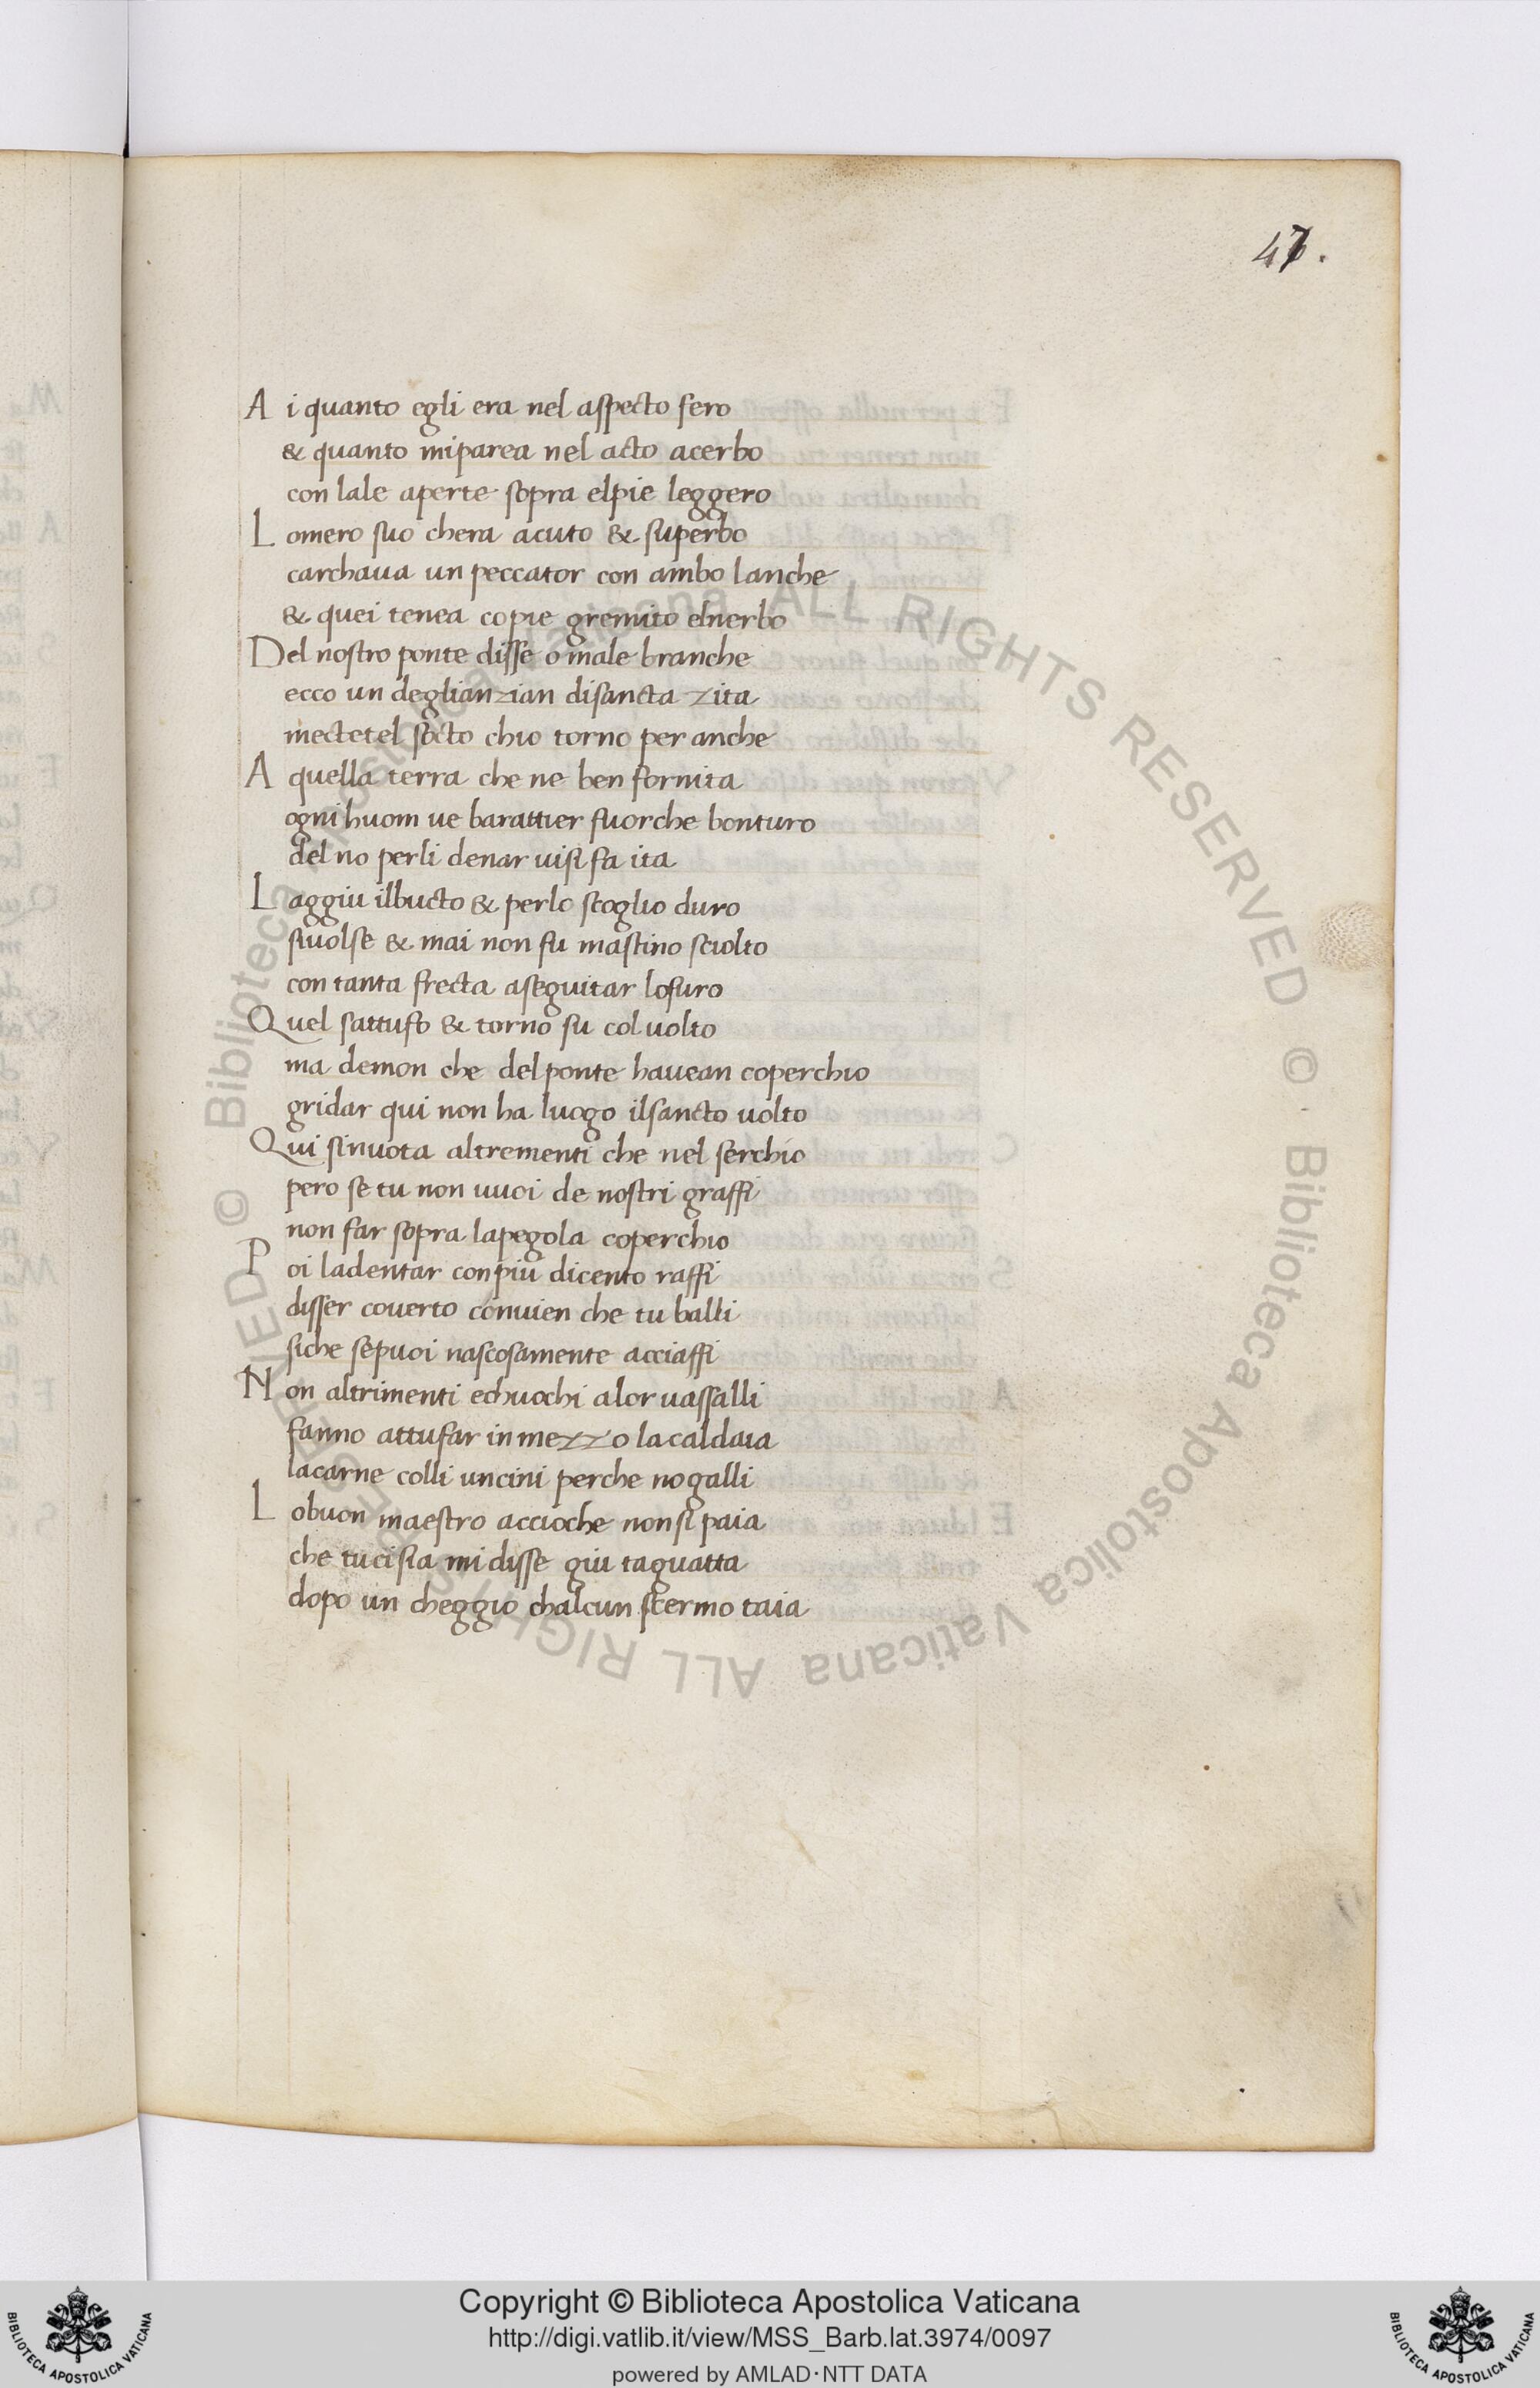 47.
A i quanto egli era nel aspecto fero
& quanto miparea nel acto acerbo
con lale aperte sopra elpie leggero
L omero suo chera acuto & superbo
carchaua un peccator con ambo lanche
& quei tenea copie gremito elnerbo
Del nostro ponte disse o male branche
ecco un deglianzian disancta zita
mectetel socto chio torno per anche
A quella terra che ne ben fornita
ogni huom ue barattier fuorche bonturo
del no perli denar uisi fa ita
L aggiu ilbucto & perlo scoglio duro
siuolse & mai non fu mastino sciolto
con tanta frecta aseguitar lofuro
Quel sattuffo & torno su col uolto
ma demon che delponte hauean coperchio
gridar qui non ha luogo ilsancto uolto
Qui sinuota altrementi che nel serchio
pero se tu non uuoi de nostri graffi
non far sopra lapegola coperchio
P oi ladentar conpiu dicento raffi
disser couerto conuien che tu balli
siche sepuoi nascosamente acciaffi
N on altrimenti echuochi alor uassalli
fanno attufar in mezzo lacaldaia
lacarne colli uncini perche nogalli
L obuon maestro accioche nonsi paia
che tucisia mi disse giu taguatta
dopo un cheggio chalcun scermo taia
Copyright © Biblioteca Apostolica Vaticana
http://digi.vatlib.it/view/MSS_Barb.lat.3974/0097
powered by AMLAD·NTT DATA
© Biblioteca Apostolica Vaticana ALL RIGHTS RESERVED
© Biblioteca Apostolica Vaticana ALL RIGHTS RESERVED
BIBLIOTECA APOSTOLICA VATICANA
BIBLIOTECA APOSTOLICA VATICANA